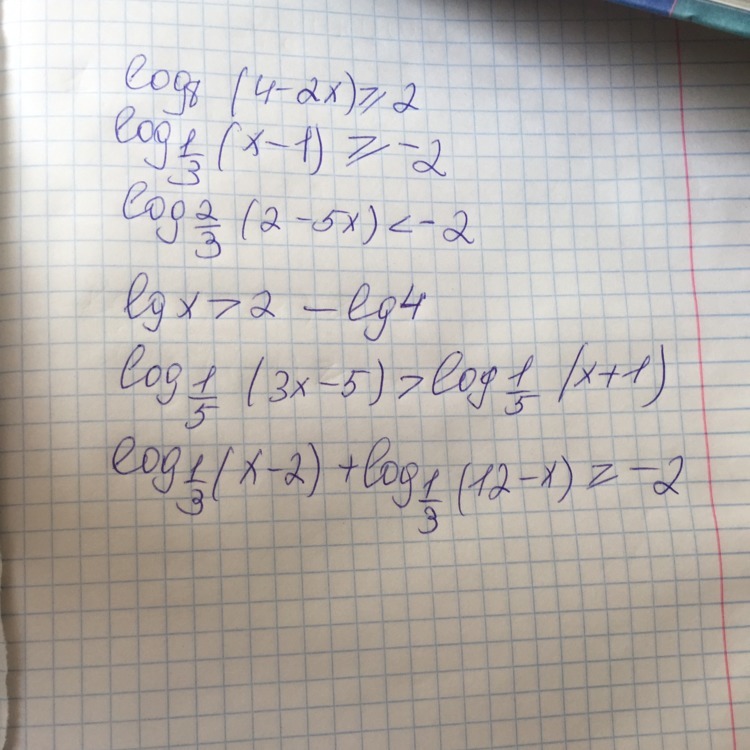 log₈ (4-2x) ⩾ 2
log 1/3 (x-1) ⩾ -2
log 2/3 (2-5x) < -2
lg x > 2 - lg 4
log 1/5 (3x-5) > log 1/5 (x+1)
log 1/3 (x-2) + log 1/3 (12-x) ≥ -2